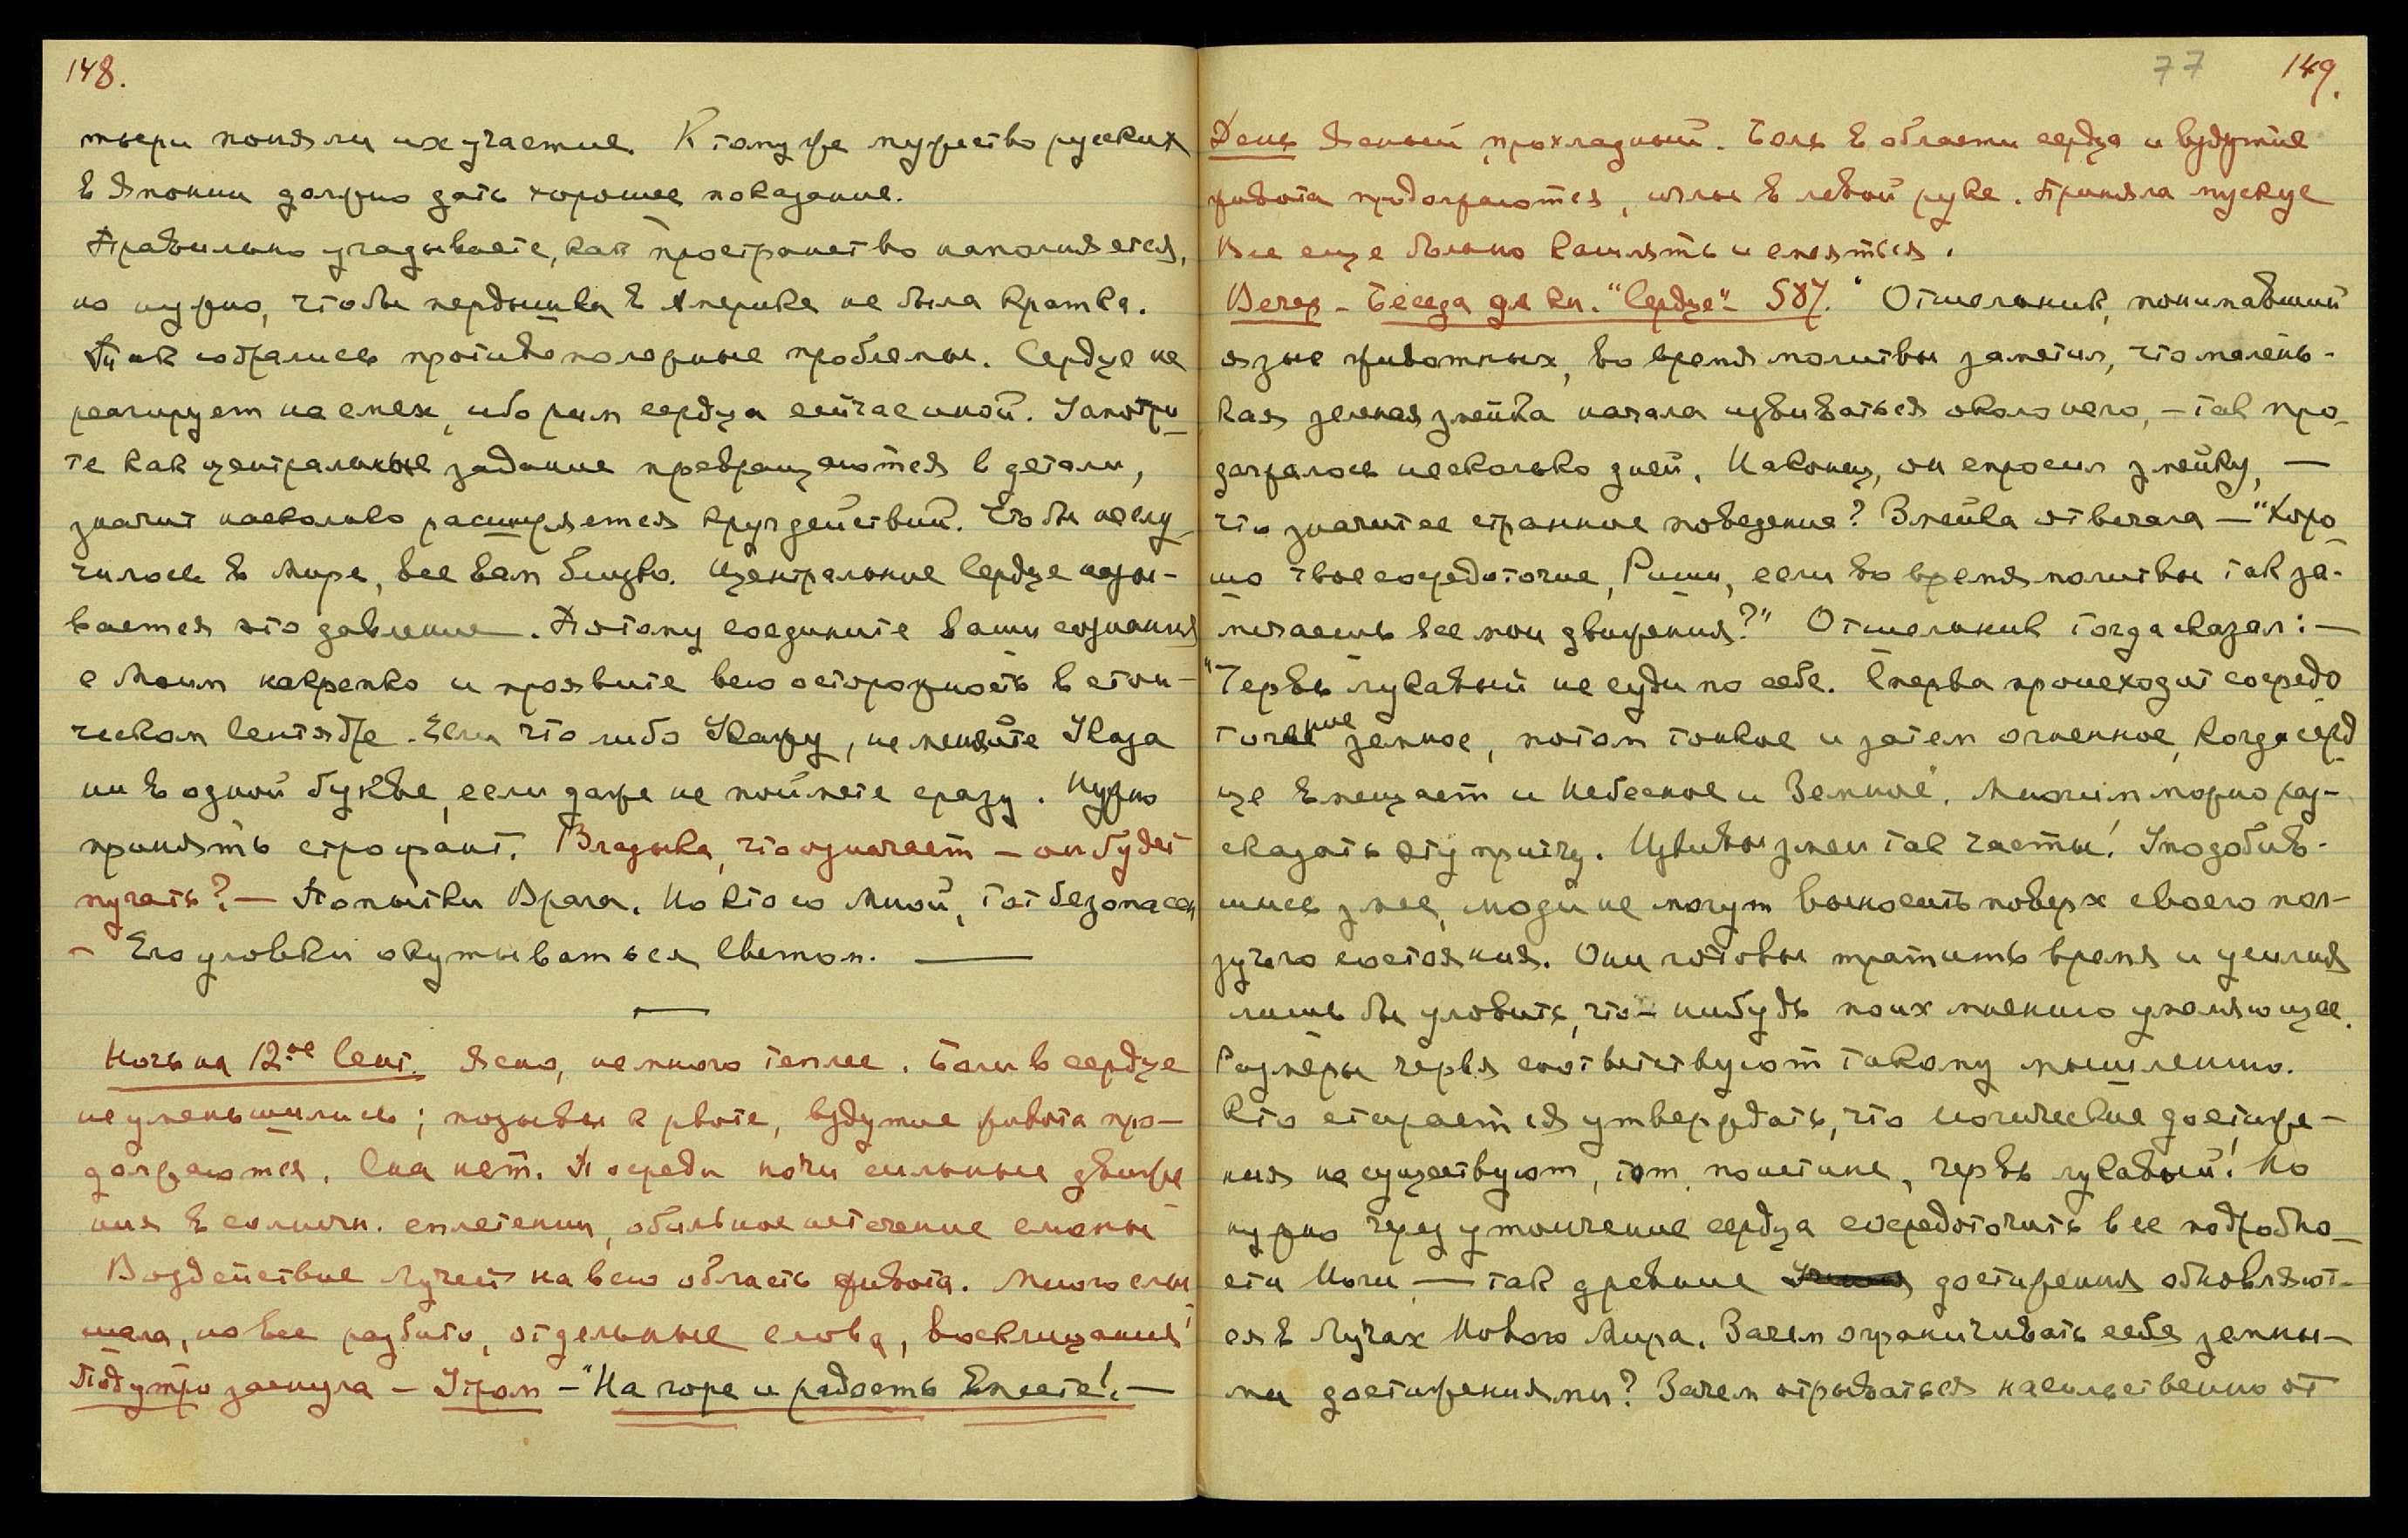 148.
тьери поняли их участие. К тому же мужество русских
в Японии должно дать хорошее показание.
Правильно угадываете, как пространство наполняется,
но нужно, чтобы передышка в Америке не была кратка.
Так собрались противоположные проблемы. Сердце не
реагирует на смех, ибо ритм сердца сейчас иной. Смотри
те как центральные задание превращаются в детали,
значит насколько расширяется круг действий. Что бы не слу
чилось в Мире, все вам близко. Центральное Сердце назы-
вается это давление. Потому соедините ваши сознания
с Моим накрепко и проявите всю осторожность в истори-
ческом Сентябре. Если что либо Скажу, не меняйте Указа
ни в одной букве, если даже не поймете сразу. Нужно
принять строфант. Владыка, что означает — он будет
мучать? — Попытки Врага. Но кто со Мной, тот безопасен
- Его уловки окутываться Светом. —
—
Ночь на 12ое Сент. Ясно, немного теплее. Боли в сердце
не уменьшились; позывы к рвоте, вздутие живота про-
должаются. Сна нет. Посреди ночи сильные движе
ния в солнечн. сплетении, обильное истечение слюны
Воздействие Лучей на всю область живота. Много слы
шала, но все разбито, отдельные слова, восклицания
Под утро заснула - Утром - "На горе и радость вместе!. —
77
149.
День Ясный прохладный. Боль в области сердца и вздутие
живота продолжаются, иглы в левой руке. Приняла мускус
Все еще больно кашлять и смеяться.
Вечер - Беседа для кн. "Сердце" - 587. "Отшельник, понимавший
язык животных, во время молитвы заметил, что малень-
кая зеленая змейка начала извиваться около него, - так про
должалось несколько дней. Наконец, он спросил змейку, —
что значит ее странное поведение? Змейка отвечала — "Хоро
шо твое сосредоточие, Риши, если во время молитвы так за-
мечаешь все мои движения?" Отшельник тогда сказал: —
"Червь лукавый не суди по себе. Сперва происходит сосредо
точение земное, потом тонкое и затем огненное, когда серд
це вмещает и Небесное и Земное". Многим можно рас-
сказать эту притчу. Извивы змеи так часты! Уподобив-
шись змее, люди не могут выносить поверх своего пол-
зучего состояния. Они готовы тратить время и усилия
лишь бы уловить, что-нибудь по их мнению умаляющее.
Размеры червя соответствуют такому мышлению.
Кто старается утверждать, что Йогические достиже-
ния не существуют, тот, поистине, червь лукавый! Но
нужно через утончение сердца сосредоточить все подробно
сти Йоги, — так древние достижения обновляют-
ся в Лучах Нового Мира. Зачем ограничивать себя земны-
ми достижениями? Зачем отрываться насильственно от